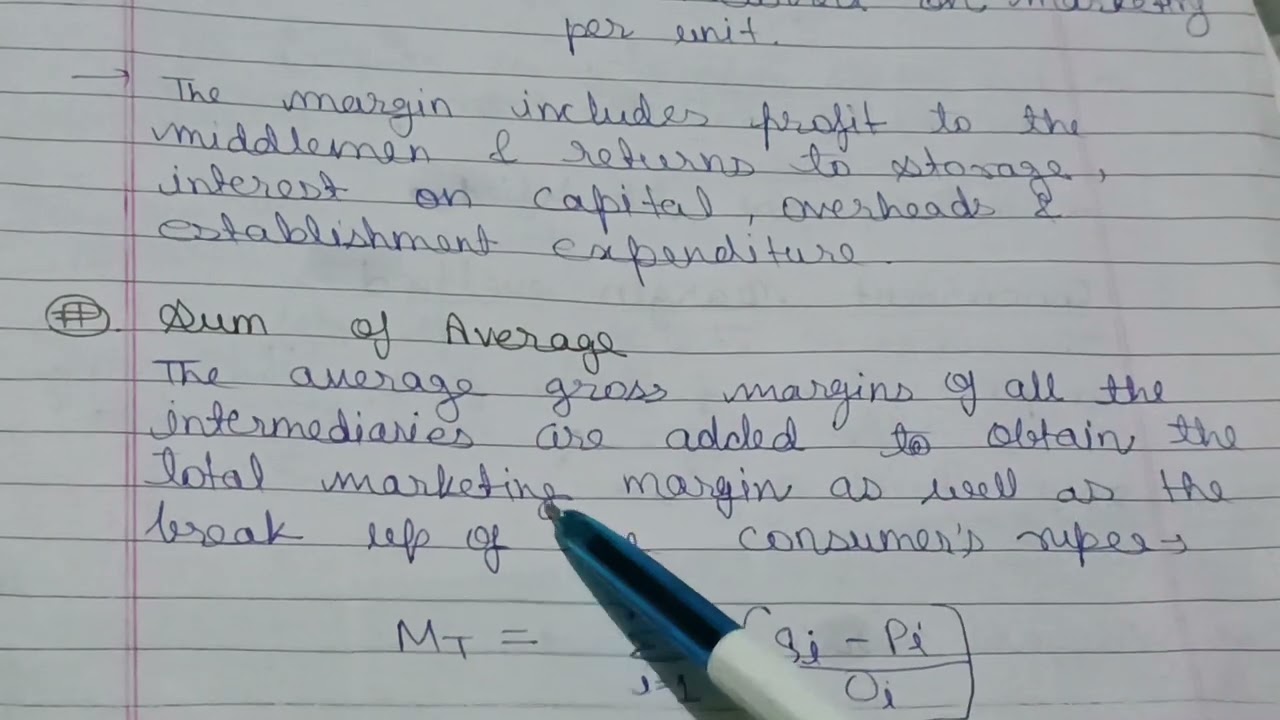 on marketing
per unit.
→ The margin includes profit to the
middlemen & returns to storage,
interest on capital, overheads &
establishment expenditure.
# Sum of Average
The average gross margins of all the
intermediaries are added to obtain the
total marketing margin as well as the
break up of consumer's rupee →
M_T = i=1 [ (S_i - P_i) / Q_i ]